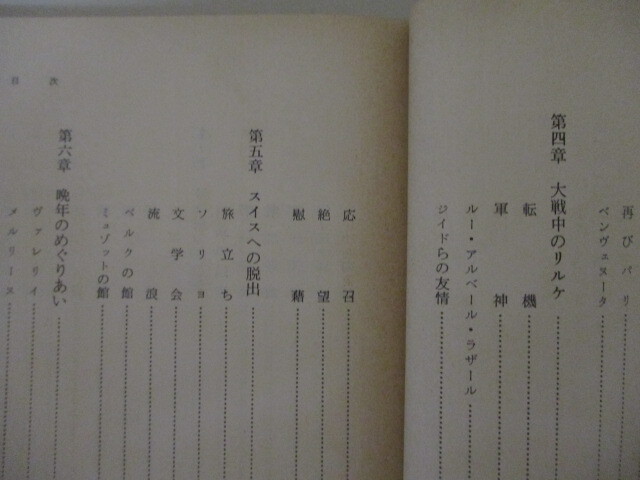 再びパリ
ベンヴェヌータ
第四章 大戦中のリルケ
転機
軍神
ルー・アルベール・ラザール
ジイドらの友情
目次
応召
絶望
慰藉
第五章 スイスへの脱出
旅立ち
ソリョ
文学会
流浪
ベルクの館
ミュゾットの館
第六章 晩年のめぐりあい
ヴァレリイ
メルリーヌ